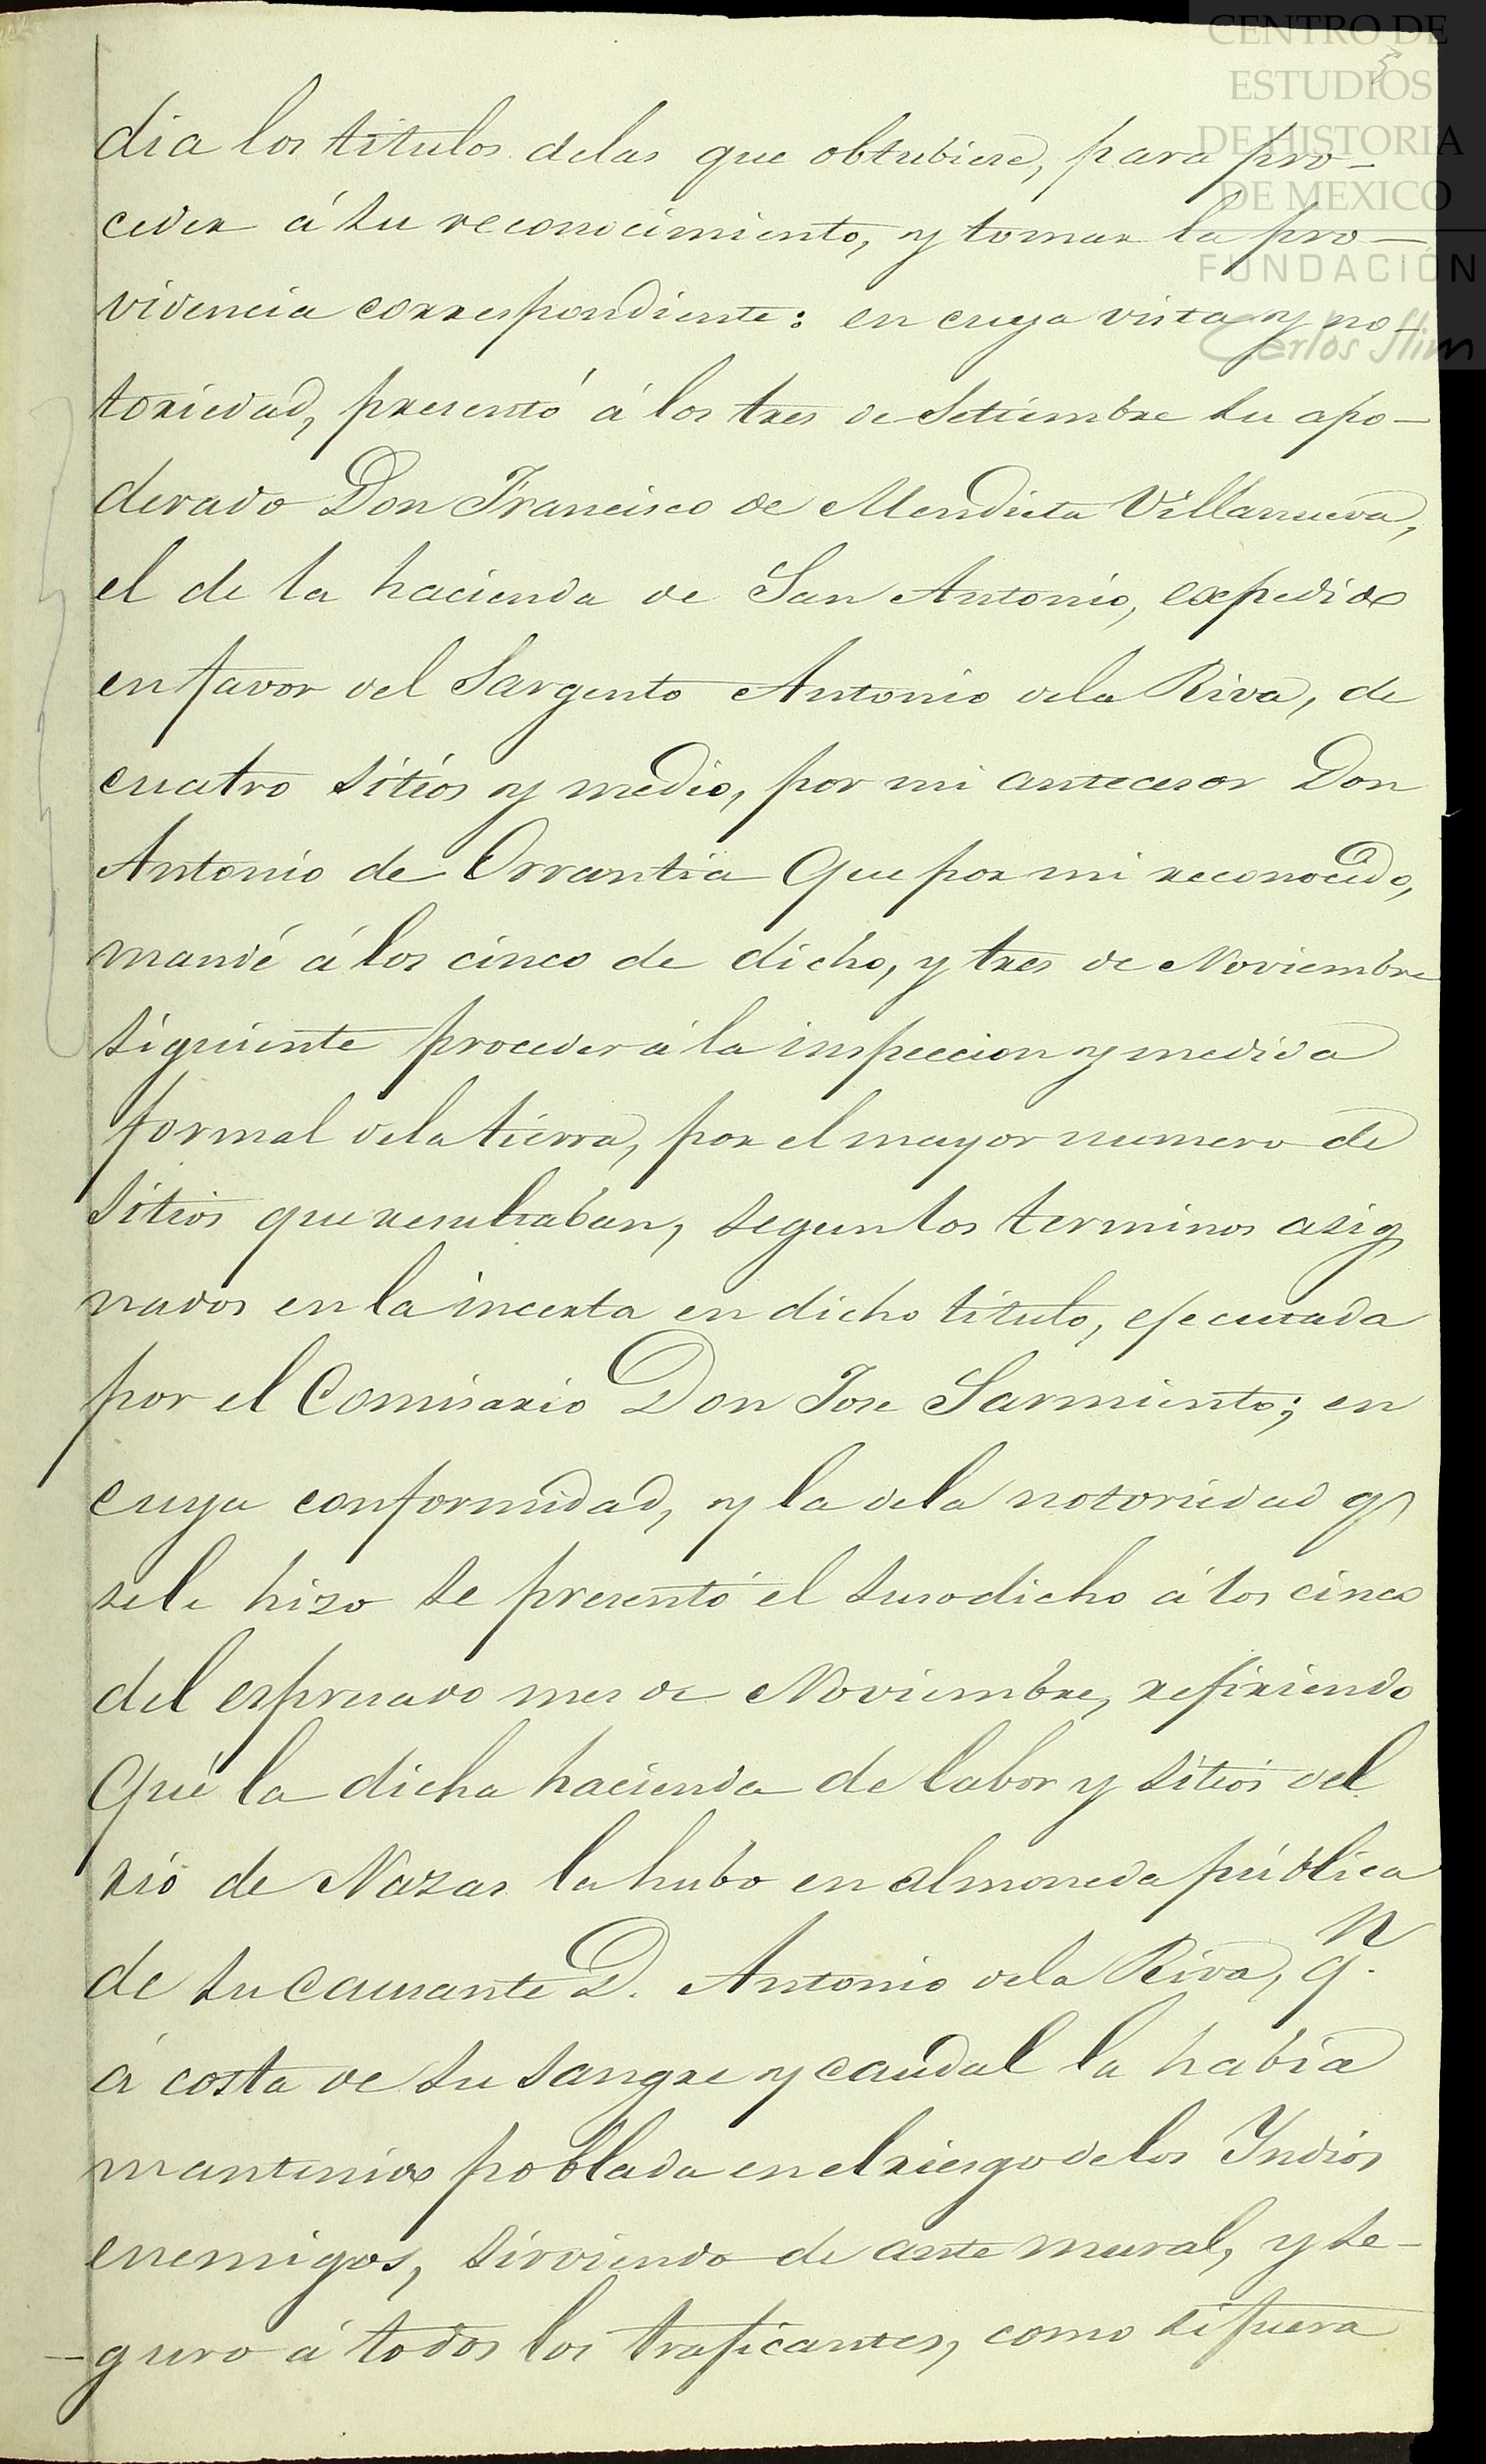 CENTRO DE
ESTUDIOS
DE HISTORIA
DE MEXICO
FUNDACIÓN
Carlos Slim
dia los titulos delas que obtubiese, para pro-
ceder á su reconocimiento, y tomar la pro-
videncia correspondiente: en cuya vista y no-
toriedad, presentó á los tres de Setiembre su apo-
derado Don Francisco de Mendieta Villanueva,
el de la hacienda de San Antonio, expedido
en favor del Sargento Antonio dela Riva, de
cuatro sitios y medio, por mi antecesor Don
Antonio de Orrantia Que por mi reconocido,
mandé á los cinco de dicho, y tres de Noviembre
siguiente proceder á la inspeccion y medida
formal dela tierra, por el mayor numero de
sitios que resultaban, segun los terminos asig
nados en la incerta en dicho titulo, ejecutada
por el Comisario Don Jose Sarmiento; en
cuya conformidad, y la dela notoriedad q
sele hizo se presentó el susodicho á los cinco
del espresado mes de Noviembre, refiriendo
Que la dicha hacienda de labor y sitios del
rio de Nazas la hubo en almoneda pública
de su causante D. Antonio dela Riva, q.n
á costa de su sangre y caudal la habia
mantenido poblada en el riesgo delos Yndios
enemigos, sirviendo de ante mural, y se-
-guro á todos los traficantes, como si fuera